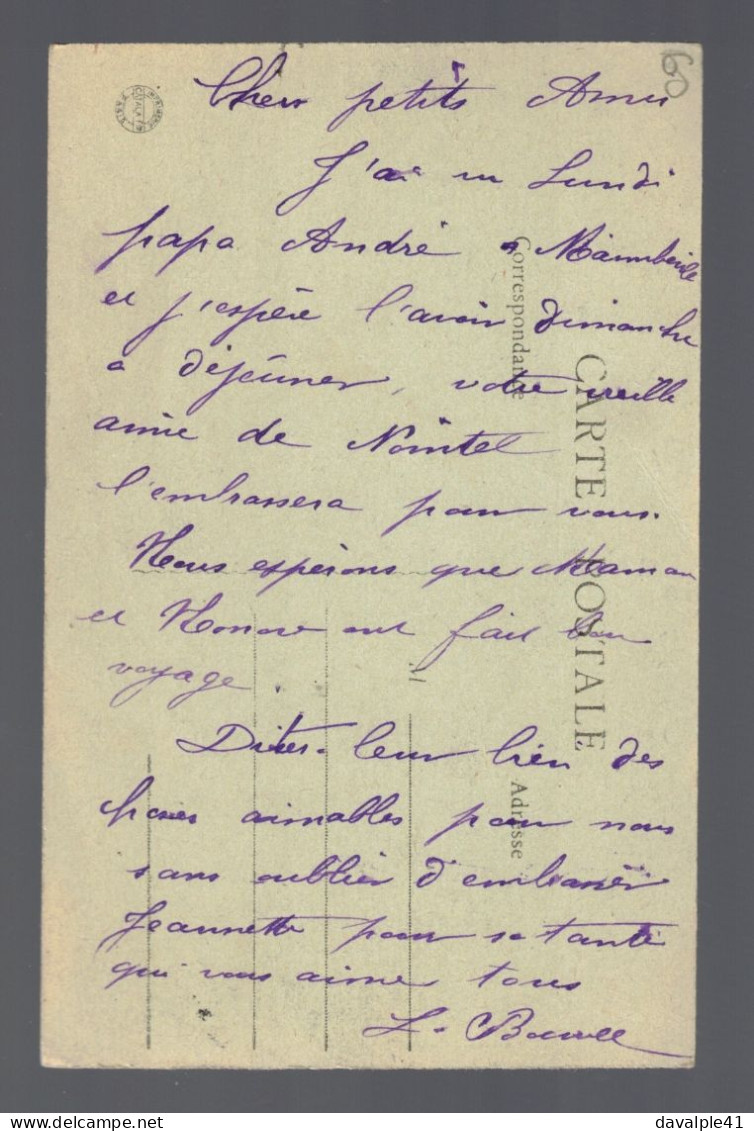 60
Chers petits Amis
J'ai vu Lundi
papa André à
et j'espère l'avoir dimanche
a déjeuner, votre vieille
amie de Nointel
l'embrassera pour vous.
Nous espérons que Maman
et Honoré ont fait bon
voyage.
Dites-leur bien des
choses aimables pour nous
sans oublier d'embrasser
Jeannette pour sa tante
qui vous aime tous
L.
CARTE POSTALE
Correspondance
Adresse
www.delcampe.net
davalple41